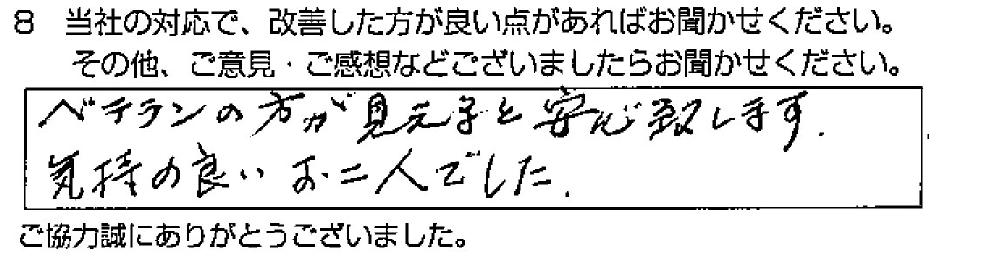 8 当社の対応で、改善した方が良い点があればお聞かせください。
その他、ご意見・ご感想などございましたらお聞かせください。
ベテランの方が見えると安心致します.
気持の良いお二人でした.
ご協力誠にありがとうございました。